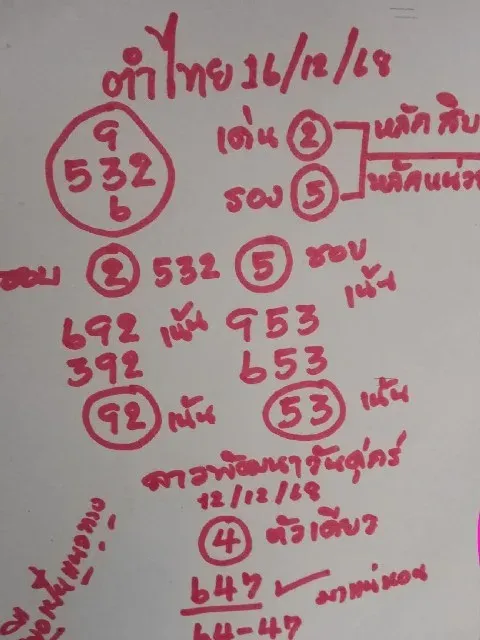 ตำไทย 16/12/68
9
532
6
เด่น 2 หลักสิบ
รอง 5 หลักหน่วย
ชอบ 2 532 5 ชอบ
692 เน้น 953 เน้น
392 653
92 เน้น 53 เน้น
ลาวพัฒนาวันศุกร์
12/12/68
4 ตัวเดียว
647 มาแน่นอน
64-47
เพื่อเป็นแนวทาง